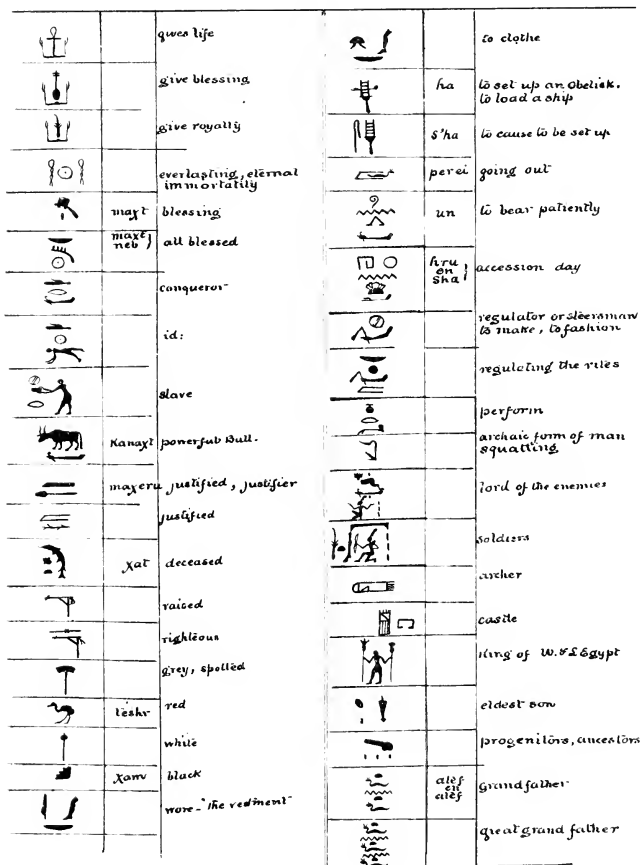 gives life
give blessing
give royalty
everlasting, eternal
immortatily
maxt blessing
maxt
neb } all blessed
conqueror
id:
slave
Kanaxt powerful Bull.
maxeru justified, justifier
justified
xat deceased
raised
righteous
grey, spotted
teshr red
white
xam black
wore "the vediment"
to clothe
ha to set up an Obelisk.
to load a ship
s'ha to cause to be set up
perei going out
un to bear patiently
hru
en
sha } accession day
regulator or steersman
to make, to fashion
regulating the rites
perform
archaic form of man
squatting
lord of the enemies
soldiers
archer
castle
King of W. & L Egypt
eldest son
progenitors, ancestors
atef
en
atef grandfather
great grand father